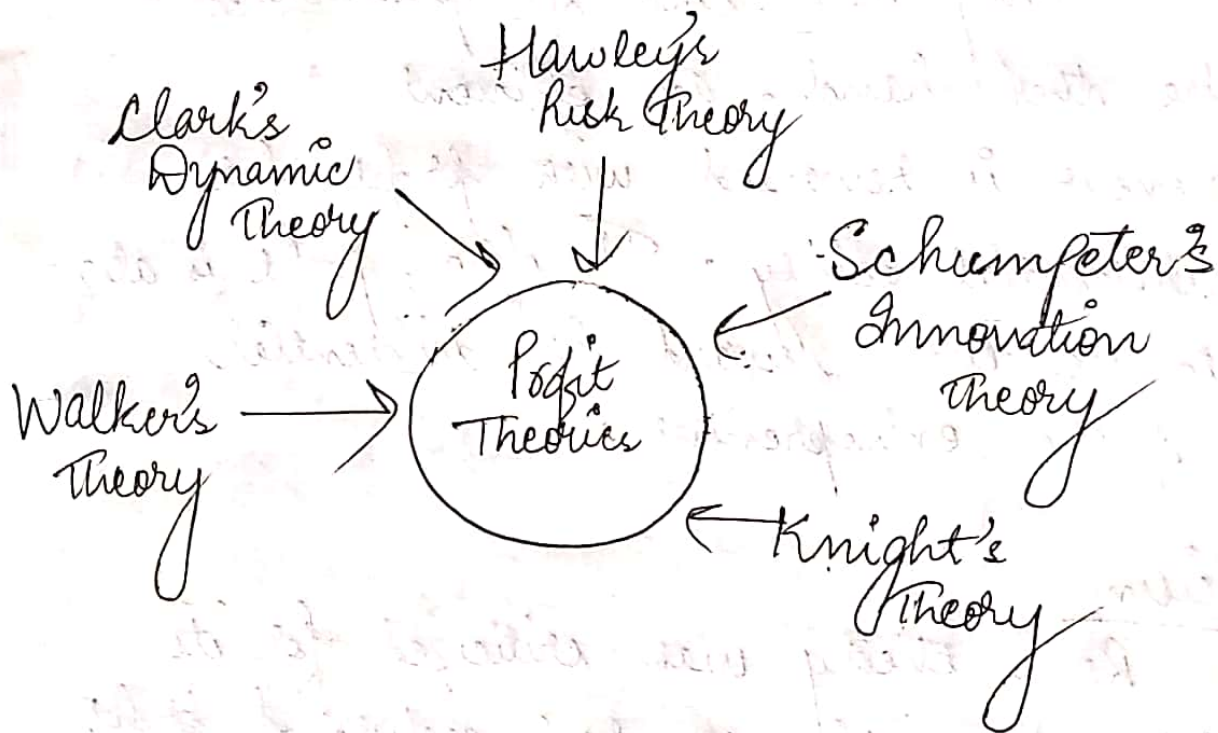 Hawley's
Risk Theory
Clark's
Dynamic
Theory
Schumpeter's
Innovation
Theory
Profit
Theories
Walker's
Theory
Knight's
Theory